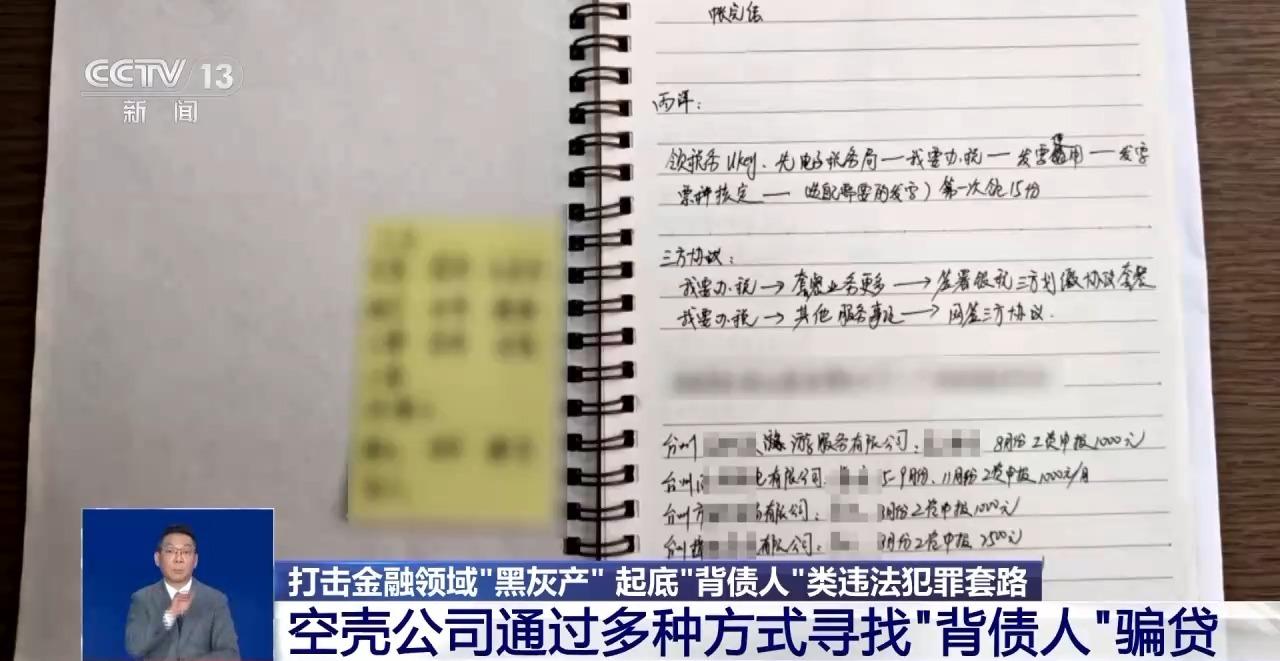 CCTV 13
新闻
帐完结
丙洋：
领税务Ukey、先电子税务局—我要办税—发票使用—发票
票种核定—选配需要的发票）第一次领15份
三方协议：
我要办税→套餐业务更多→签署银税三方划缴协议套餐
我要办税→其他服务事项→网签三方协议.
台州 游服务有限公司： 8月份工资申报1000元
台州 有限公司： 5-9月份、11月份工资申报1000元/月
台州 有限公司： 月份工资申报1000元
台州 有限公司： 月份工资申报2500元
打击金融领域"黑灰产" 起底"背债人"类违法犯罪套路
空壳公司通过多种方式寻找"背债人"骗贷